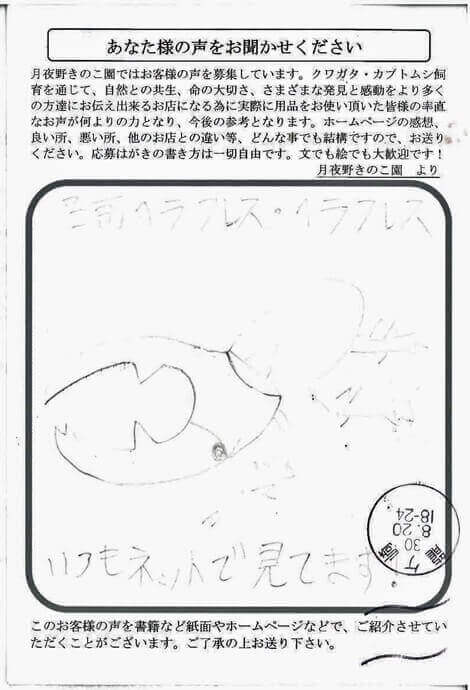 あなた様の声をお聞かせください
月夜野きのこ園ではお客様の声を募集しています。クワガタ・カブトムシ飼
育を通じて、自然との共生、命の大切さ、さまざまな発見と感動をより多く
の方達にお伝え出来るお店になる為に実際に用品をお使い頂いた皆様の率直
なお声が何よりの力となり、今後の参考となります。ホームページの感想、
良い所、悪い所、他のお店との違い等、どんな事でも結構ですので、お送り
ください。応募はがきの書き方は一切自由です。文でも絵でも大歓迎です！
月夜野きのこ園　より
ヘラクレス・ヘラクレス
30
8.20
18-24
いつもネットで見てます
このお客様の声を書籍など紙面やホームページなどで、ご紹介させてい
ただくことがございます。ご了承の上お送り下さい。